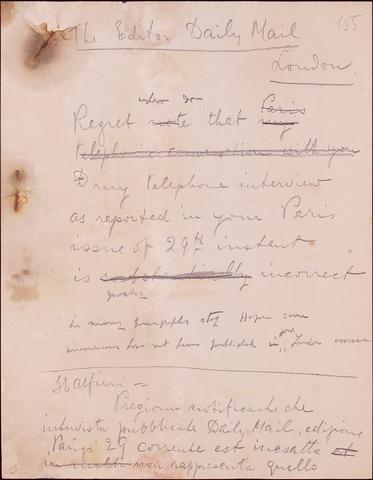 155
The Editor Daily Mail
London.
inform you Paris
Regret note that my
telephonic conversation with you
D my telephone interview
as reported in your Paris
issue of 29th instant
is substantially incorrect
in many paragraphs stop Hope same
your
have not been published in London
Stalfini =
Pregiomi notificarLe che
intervista pubblicata Daily Mail, edizione
Parigi 29 corrente est inesatta et
in molti non rappresenta quello